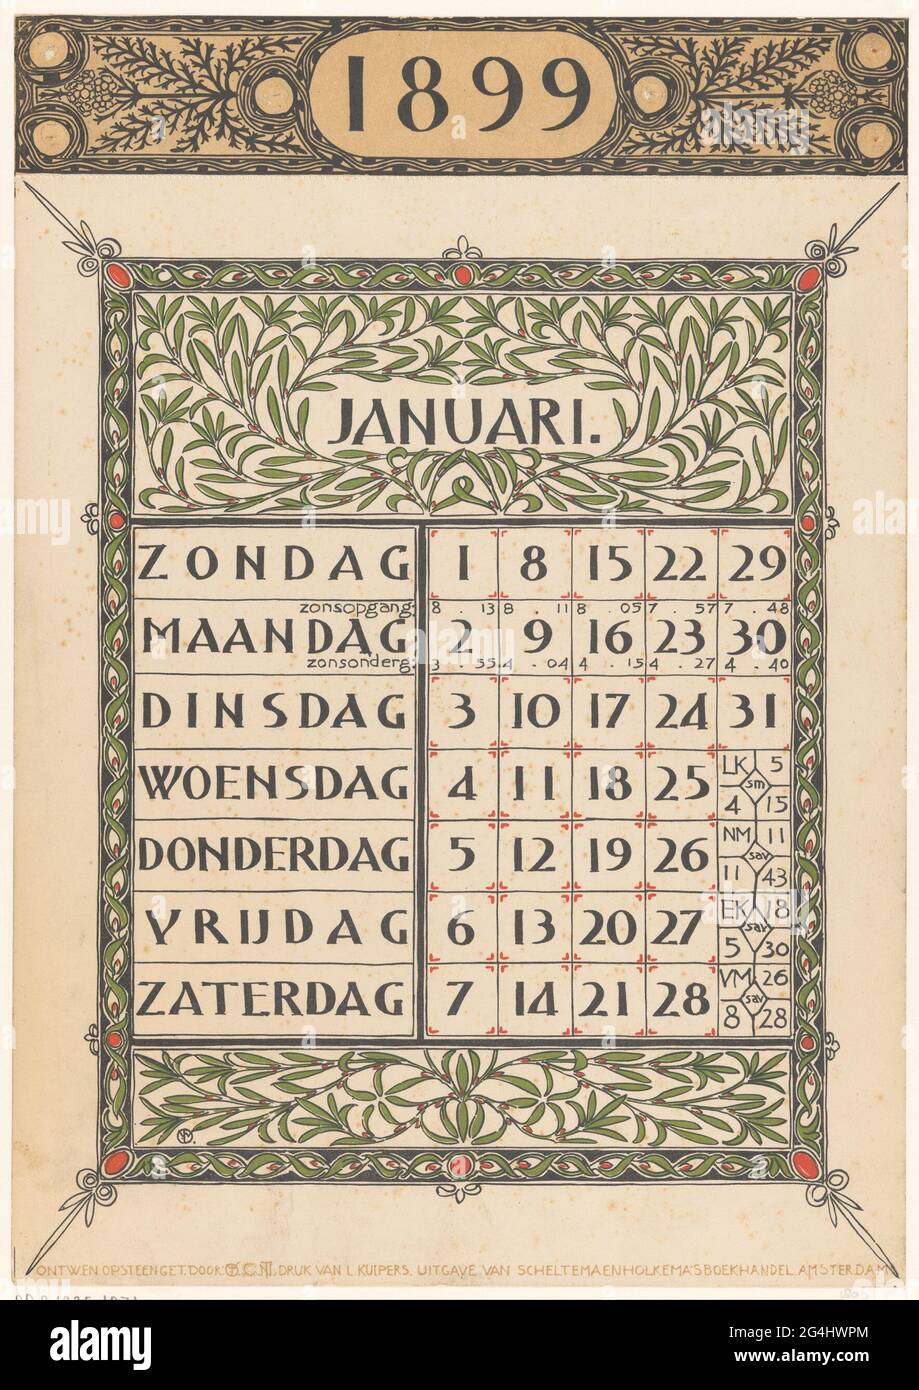 1899
JANUARI.
ZONDAG 1 8 15 22 29
zonsopgang: 8 . 13 8 . 11 8 . 05 7 . 57 7 . 48
MAANDAG 2 9 16 23 30
zonsonderg: 3 . 55 4 . 04 4 . 15 4 . 27 4 . 40
DINSDAG 3 10 17 24 31
WOENSDAG 4 11 18 25 LK 5 sm 4 15
DONDERDAG 5 12 19 26 NM 11 sav 11 43
VRIJDAG 6 13 20 27 EK 18 sav 5 30
ZATERDAG 7 14 21 28 VM 26 sav 8 28
ONTW.EN OPSTEENGET.DOOR: DRUK VAN L. KUIPERS. UITGAVE VAN SCHELTEMAENHOLKEMA'SBOEKHANDEL.AMSTERDAM
alamy
Image ID: 2G4HWPM
www.alamy.com